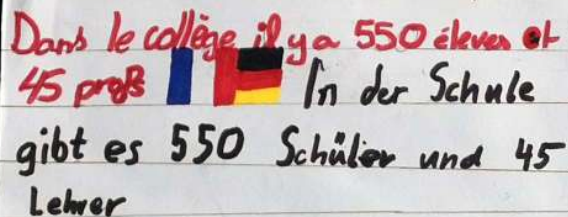 Dans le collège il y a 550 élèves et
45 profs In der Schule
gibt es 550 Schüler und 45
Lehrer